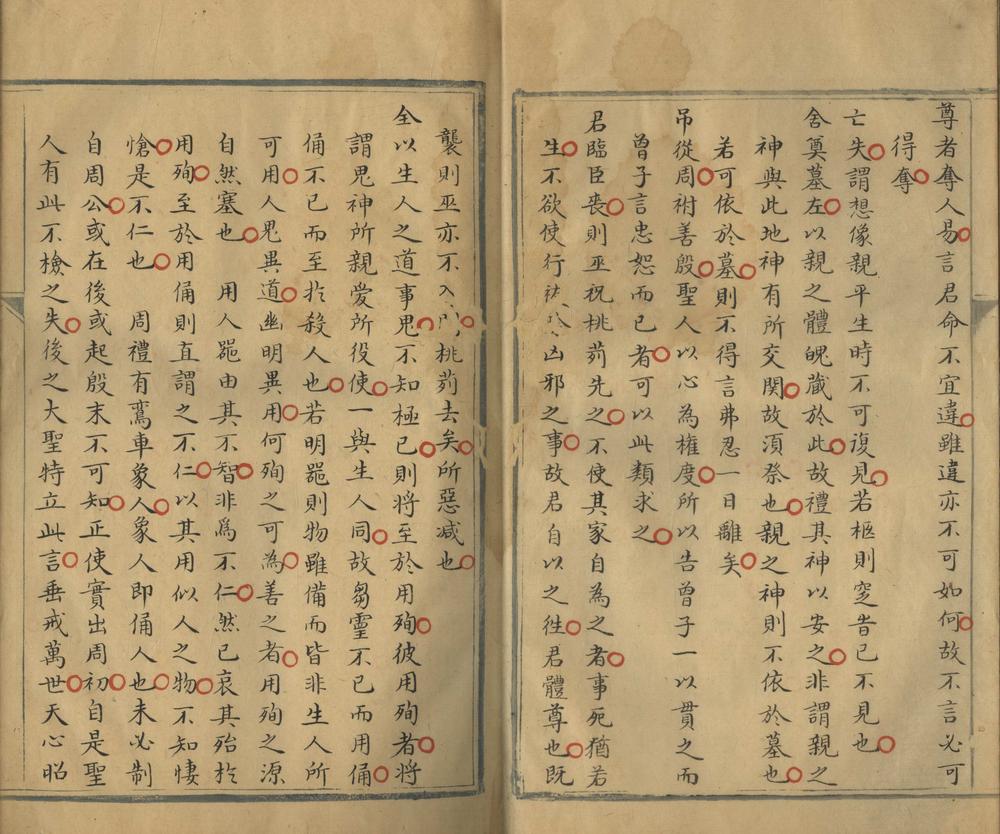 尊者奪人易言君命不宜違雖違亦不可如何故不言必可
得奪
亡失謂想像親平生時不可復見若柩則窆告已不見也
舍奠墓左以親之體魄藏於此故禮其神以安之非謂親之
神與此地神有所交関故湏祭也親之神則不依於墓也
若可依於墓則不得言弗忍一日離矣
吊從周祔善殷聖人以心為權度所以告曾子一以貫之而
曾子言忠恕而已者可以此類求之
君臨臣喪則巫祝桃茢先之不使其家自為之者事死猶若
生不欲使行凶邪之事故君自以之徃君體尊也既
襲則巫亦不入桃茢去矣所惡減也
全以生人之道事鬼不知極已則將至於用殉彼用殉者將
謂鬼神所親愛所役使一與生人同故芻靈不已而用俑
俑不已而至扵殺人也若明噐則物雖備而皆非生人所
可用人鬼異道幽明異用何殉之可為善之者用殉之源
自然塞也 用人噐由其不智非爲不仁然已哀其殆扵
用殉至於用俑則直謂之不仁以其用似人之物不知悽
愴是不仁也 周禮有鸞車象人象人即俑人也未必制
自周公或在後或起殷末不可知正使實出周初自是聖
人有此不檢之失後之大聖特立此言垂戒萬世天心昭